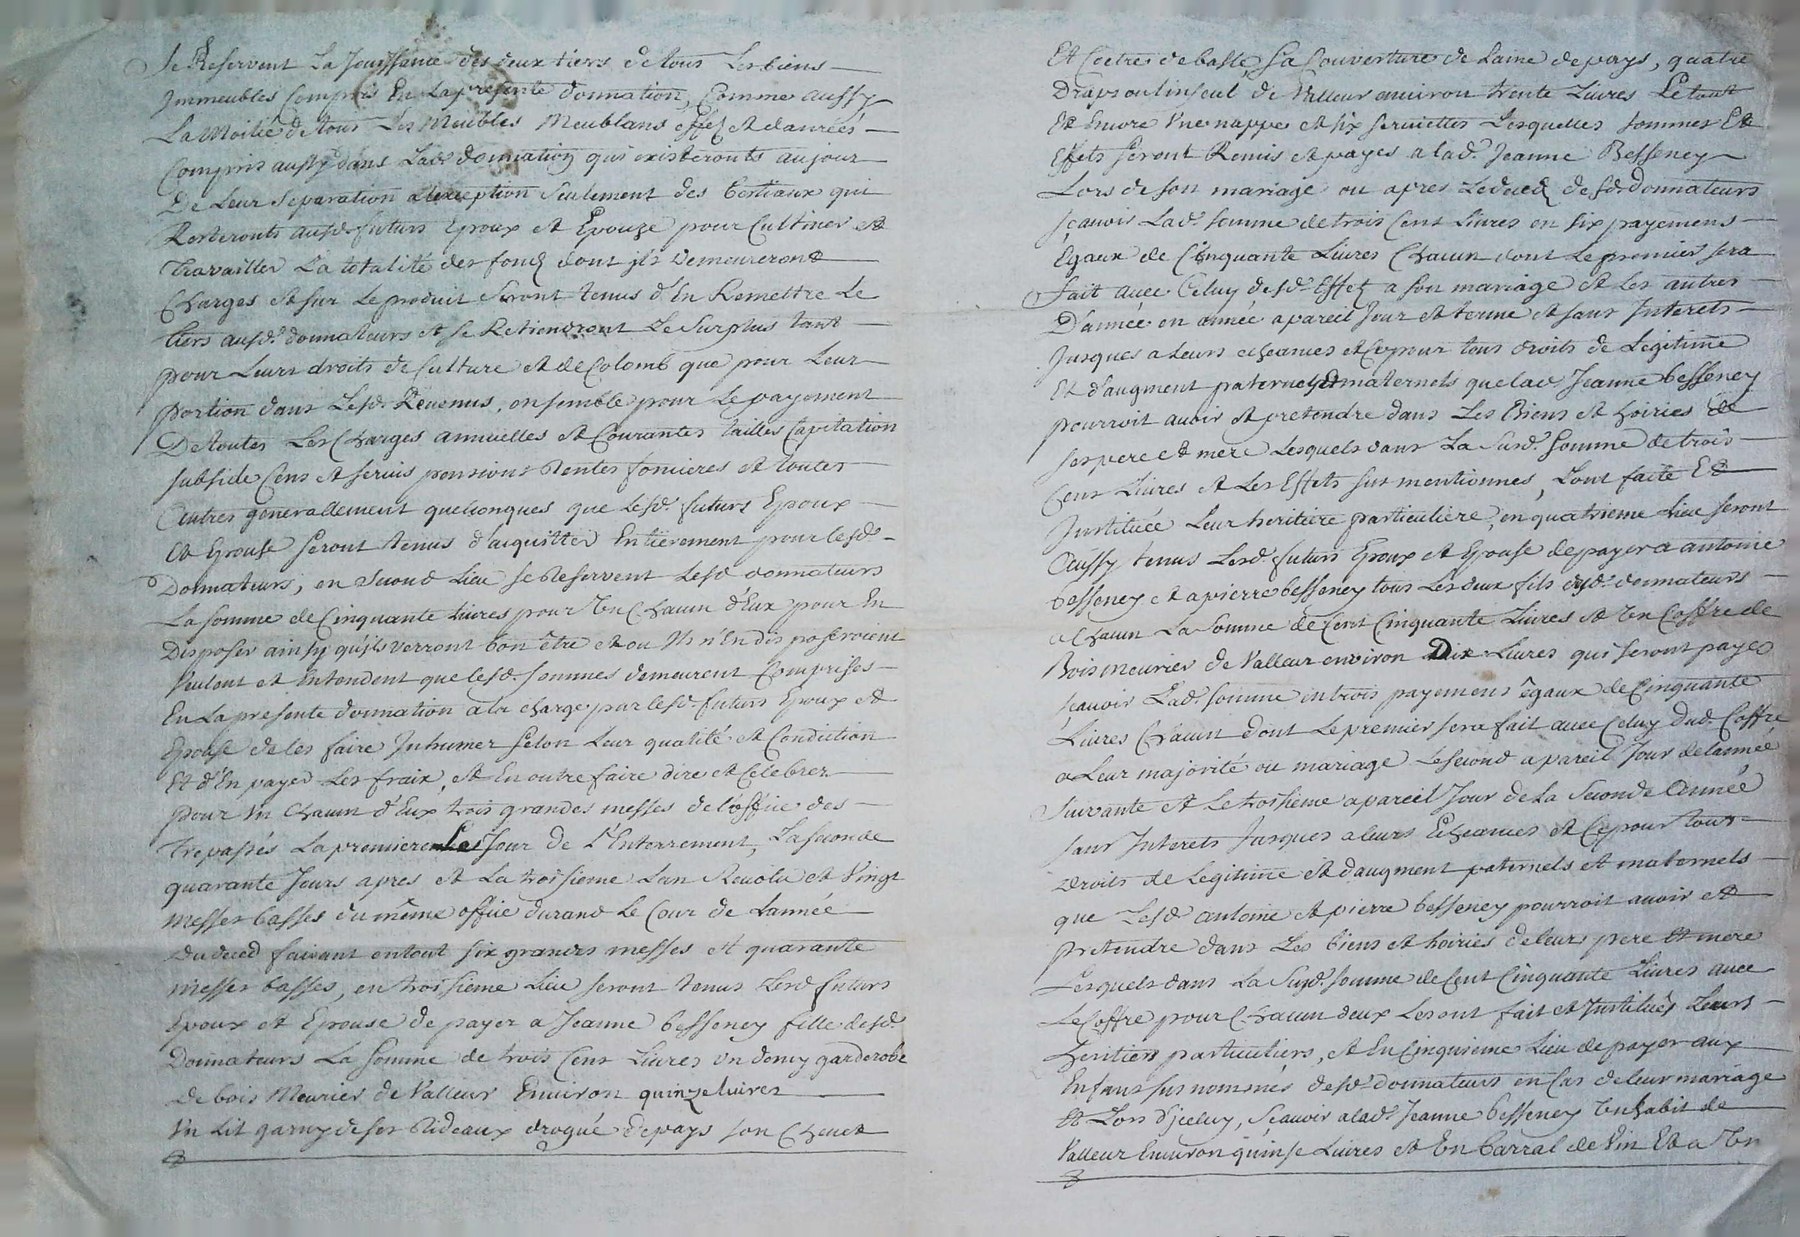 se Reservent La Jouissance des deux tiers de tous Les biens
Immeubles Compris En La presente donnation, Comme aussy
La Moitié de tous Les Meubles Meublans effez et danrées
Compris aussy dans Lad. donnation qui existeronts au jour
De Leur Separation a Lexception Seulement des bestiaux qui
Resteronts ausd. futurs Epoux et Epouze pour Cultiver et
Travailler La totalité des fonds dont jls demeureront
Charges et sur Le produit Seront tenus d'En Remettre Le
tiers ausd. donnateurs et se Retiendront Le Surplus tant
pour Leurs droits de Culture et de Colomb que pour Leur
portion dans Lesd. Revenus, ensemble pour Le payement
De toutes Les Charges annuelles et Courantes tailles Capitation
subside Cens et servis pensions Rentes foncieres et toutes
autres generallement quelconques que Lesd. futurs Epoux
et Epouse seront tenus d'acquitter Entièrement pour lesd.
Donnateurs; en second Lieu se Reservent Lesd donnateurs
La somme de Cinquante Livres pour Un Chacun d'Eux pour En
Disposer ainsy qu'ils verront bon être et ou Ils n'En disposeroient
veulent et entendent que lesd. sommes demeurent Comprises
En La presente donnation a la charge par lesd. futurs Epoux et
Epouse de les faire Inhumer selon Leur qualité et Condiction
Et d'En payer Les fraix, et En outre faire dire et Celebrer
pour Un Chacun d'Eux trois grandes messes de l'office des
Trepassés La premiere Le Jour de L'Enterrement, La seconde
quarante Jours apres et La troisieme Lan Revolu et Vingt
Messes basses du même office durand Le Cour de Lannée
du deced faisant en tout six grandes messes et quarante
messes basses, en troisieme Lieu seront tenus Lesd futurs
Epoux et Epouse de payer a Jeanne besseney fille desd.
Donnateurs La somme de trois Cens Livres un demy garderobe
de bois Meurier de Valleur Environ quinze livres
Un Lit garny de ses Rideaux drogué de pays son Chevet
Et Coetre de balle, sa Couverture de Laine de pays, quatre
Draps ou linseul de Valleur environ trente Livres Le tout
Et Encore Une nappe et six serviettes Lesquelles sommes Et
Effets seront Remis et payes a lad. Jeanne Besseney
Lors de son mariage ou apres Le deced desd. donnateurs
sçavoir Lad. somme de trois Cent Livres en six payemens
Egaux de Cinquante Livres Chacun dont Le premier sera
fait avec Celuy desd. Effez a son mariage et Les autres
D'année en année a pareil Jour et terme et sans Interets
Jusques a Leurs echeances et Ce pour tous droits de Legitime
Et d'augment paternels et maternels que lad. Jeanne besseney
pourroit avoir et pretendre dans Les Biens et hoiries de
ses pere et mere Lesquels dans La Susd. somme de trois
Cens Livres et Les Effets sus mentionnes, L'ont faite Et
Instituée Leur heritiere particuliere, en quatrieme Lieu seront
Aussy tenus Lesd. futurs Epoux et Epouse de payer a antoine
besseney et a pierre besseney tous Les deux fils desd. donnateurs
a Chacun La somme de Cent Cinquante Livres et Un Coffre de
Bois meurier de Valleur environ Dix Livres qui seront payés
sçavoir Lad. somme en trois payemens égaux de Cinquante
Livres Chacun dont Le premier sera fait avec Celuy dud. Coffre
a Leur majorité ou mariage Le second a pareil Jour de lannée
Suivante et Le troisieme a pareil Jour de La Seconde Année
sans Interets Jusques a leurs Echeances et Ce pour tous
droits de Legitime et d'augment paternels et maternels
que Lesd. antoine et pierre besseney pourroit avoir et
pretendre dans Les biens et hoiries de leurs pere et mere
Lesquels dans La Susd. somme de Cent Cinquante Livres avec
Le Coffre pour Chacun deux Les ont fait et Institués Leurs
heritiers particuliers, et En Cinquieme Lieu de payer aux
Enfans sus nommés desd. donnateurs en Cas de leur mariage
et Lors d'jceluy, Scavoir a lad. Jeanne besseney Un habit de
Valleur Environ quinse Livres et Un barral de Vin Et a Un